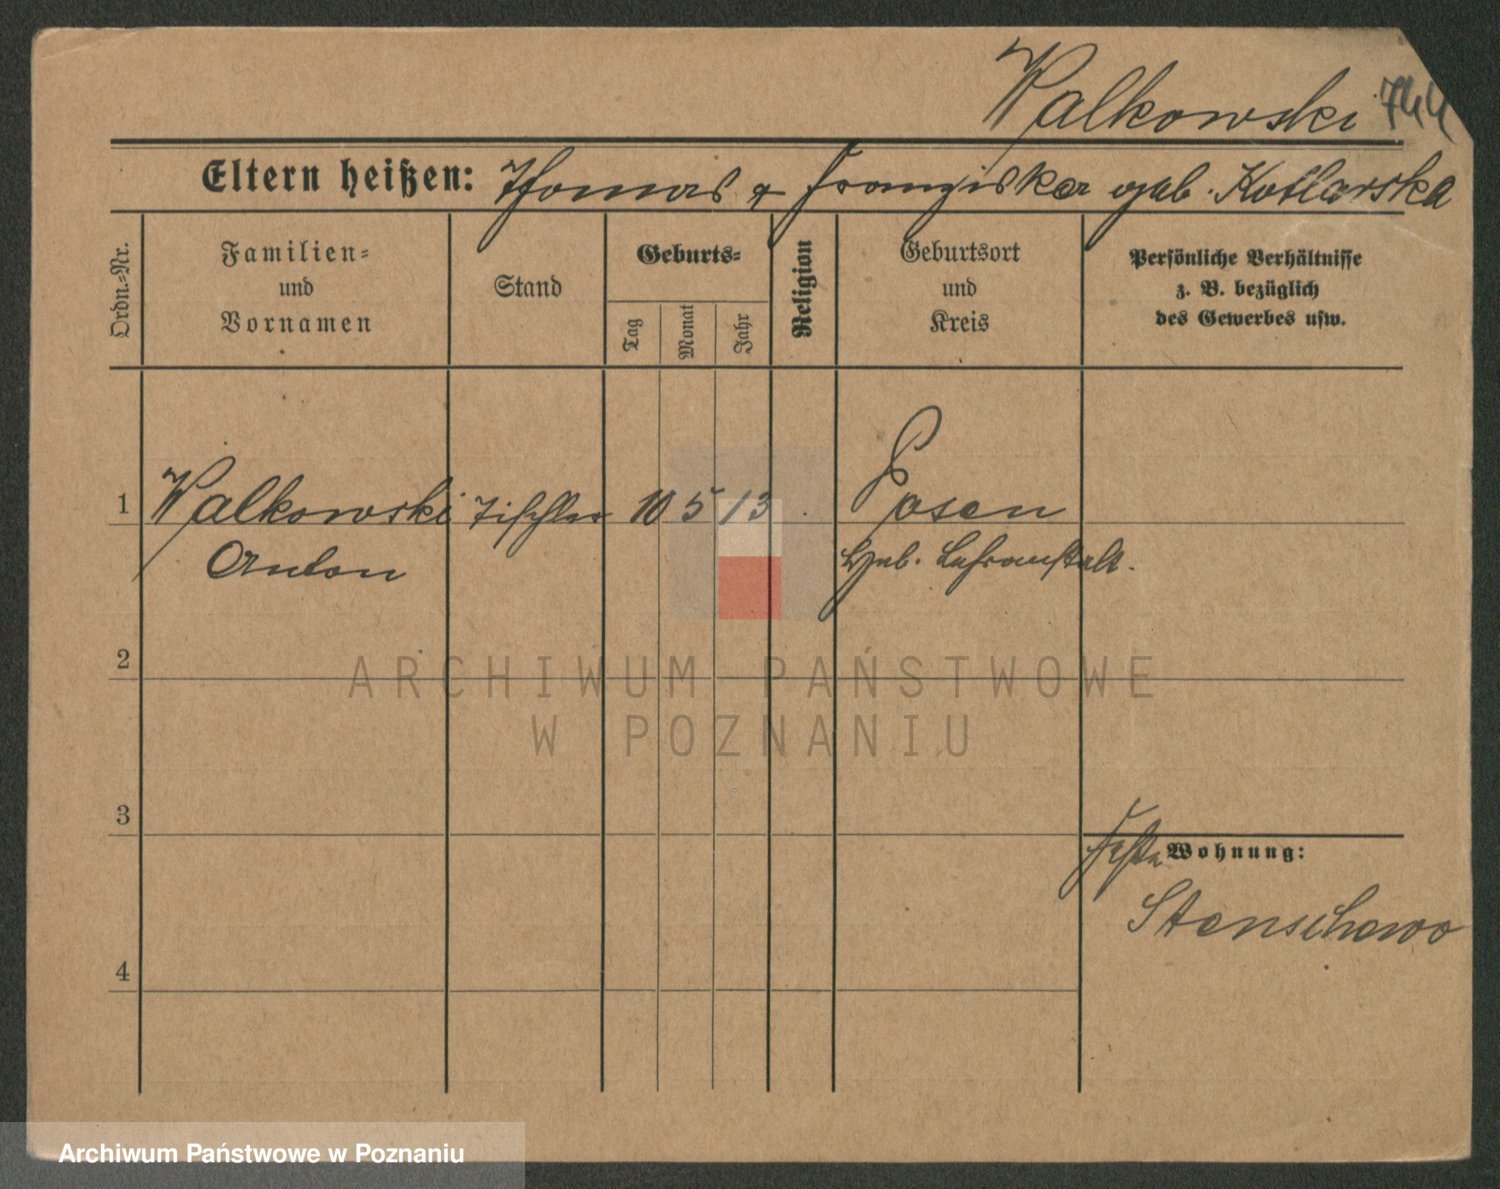 Walkowski 744
Eltern heißen: Thomas & Franziska geb. Kotlarska
Ordn.-Nr.
Familien-
und
Vornamen
Stand
Geburts-
Tag
Monat
Jahr
Religion
Geburtsort
und
Kreis
Persönliche Verhältnisse
z. B. bezüglich
des Gewerbes usw.
1 Walkowski Tischler 10 5 13 Posen
Anton Heb. Lehranstalt.
2
ARCHIWUM PAŃSTWOWE
W POZNANIU
3
Wohnung:
Stenschewo
4
Archiwum Państwowe w Poznaniu